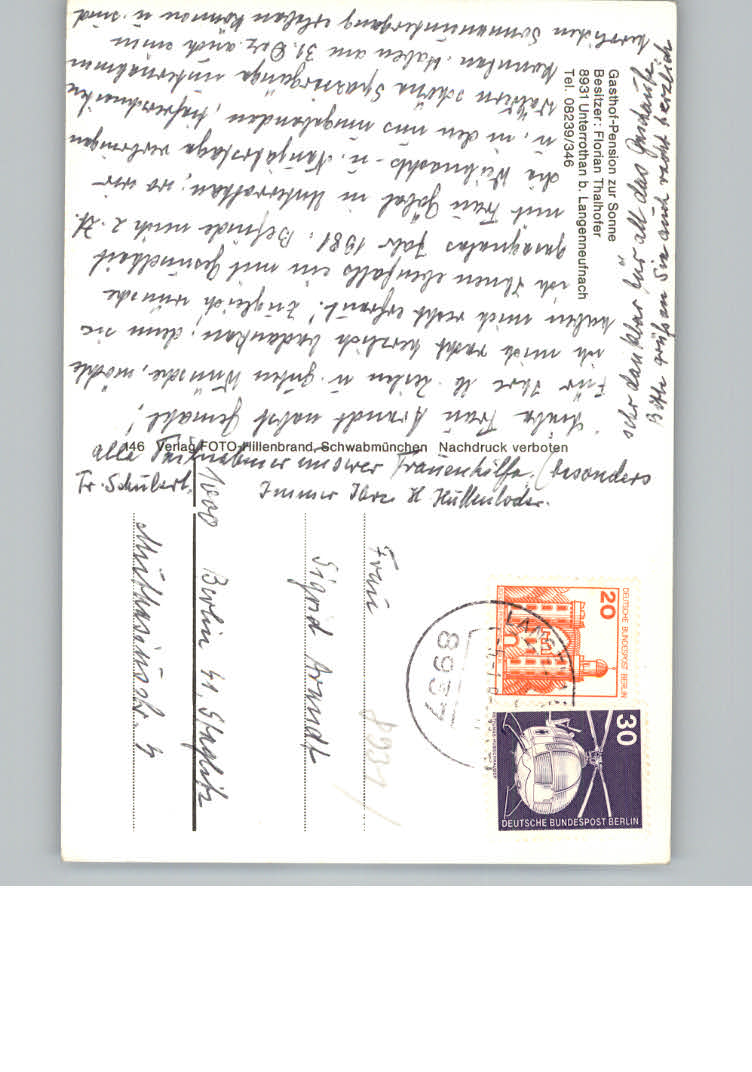 Gasthof-Pension zur Sonne
Besitzer: Florian Thalhofer
8931 Unterrothan b. Langenneufnach
Tel. 08239/346
Liebe Frau Arandt nebst Gemahl!
Für Ihre lb. Zeilen u. guten Wünsche, möchte
ich mich recht herzlich bedanken, denn sie
haben mich recht erfreut. Zugleich wünsche
ich Ihnen ebenfalls ein mit Gesundheit
gesegnetes Jahr 1981. Befinde mich z. Zt.
mit Frau Göbel in Unterrothan, wo wir
die Weihnachts- u. Neujahrstage verbringen
u. in den uns umgebenden,
Wäldern schöne Spaziergänge unternehmen
konnten. Haben am 31. Dez. auch einen
herrlichen Sonnenuntergang erleben können u. sind
sehr dankbar für all das
Bitte grüßen Sie auch recht herzlich
alle Teilnehmer unserer Frauenhilfe, besonders
Fr. Schubert.
Immer Ihre H
146 Verlag FOTO-Hillenbrand, Schwabmünchen Nachdruck verboten
Frau
Sigrid Arandt
1000 Berlin 41, Steglitz
Muthesiusstr. 4
8937
8937
DEUTSCHE BUNDESPOST BERLIN
20
30
DEUTSCHE BUNDESPOST BERLIN